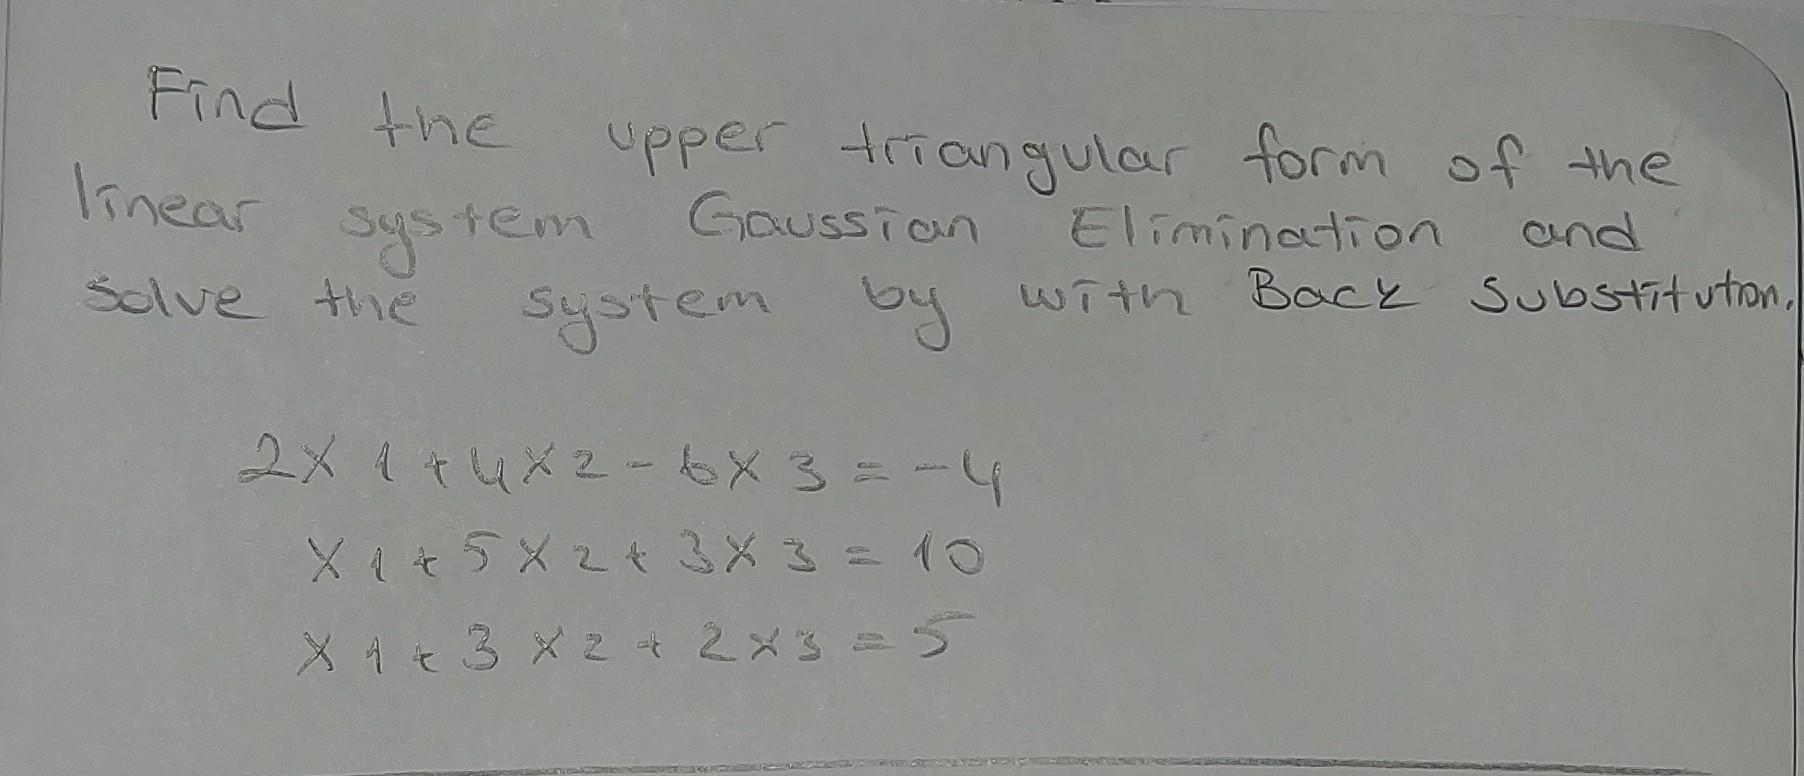 Find the upper triangular form of the
linear system Gaussian Elimination and
solve the system by with Back Substitution.
2x1+4x2-6x3=-4
x1+5x2+3x3=10
x1+3x2+2x3=5